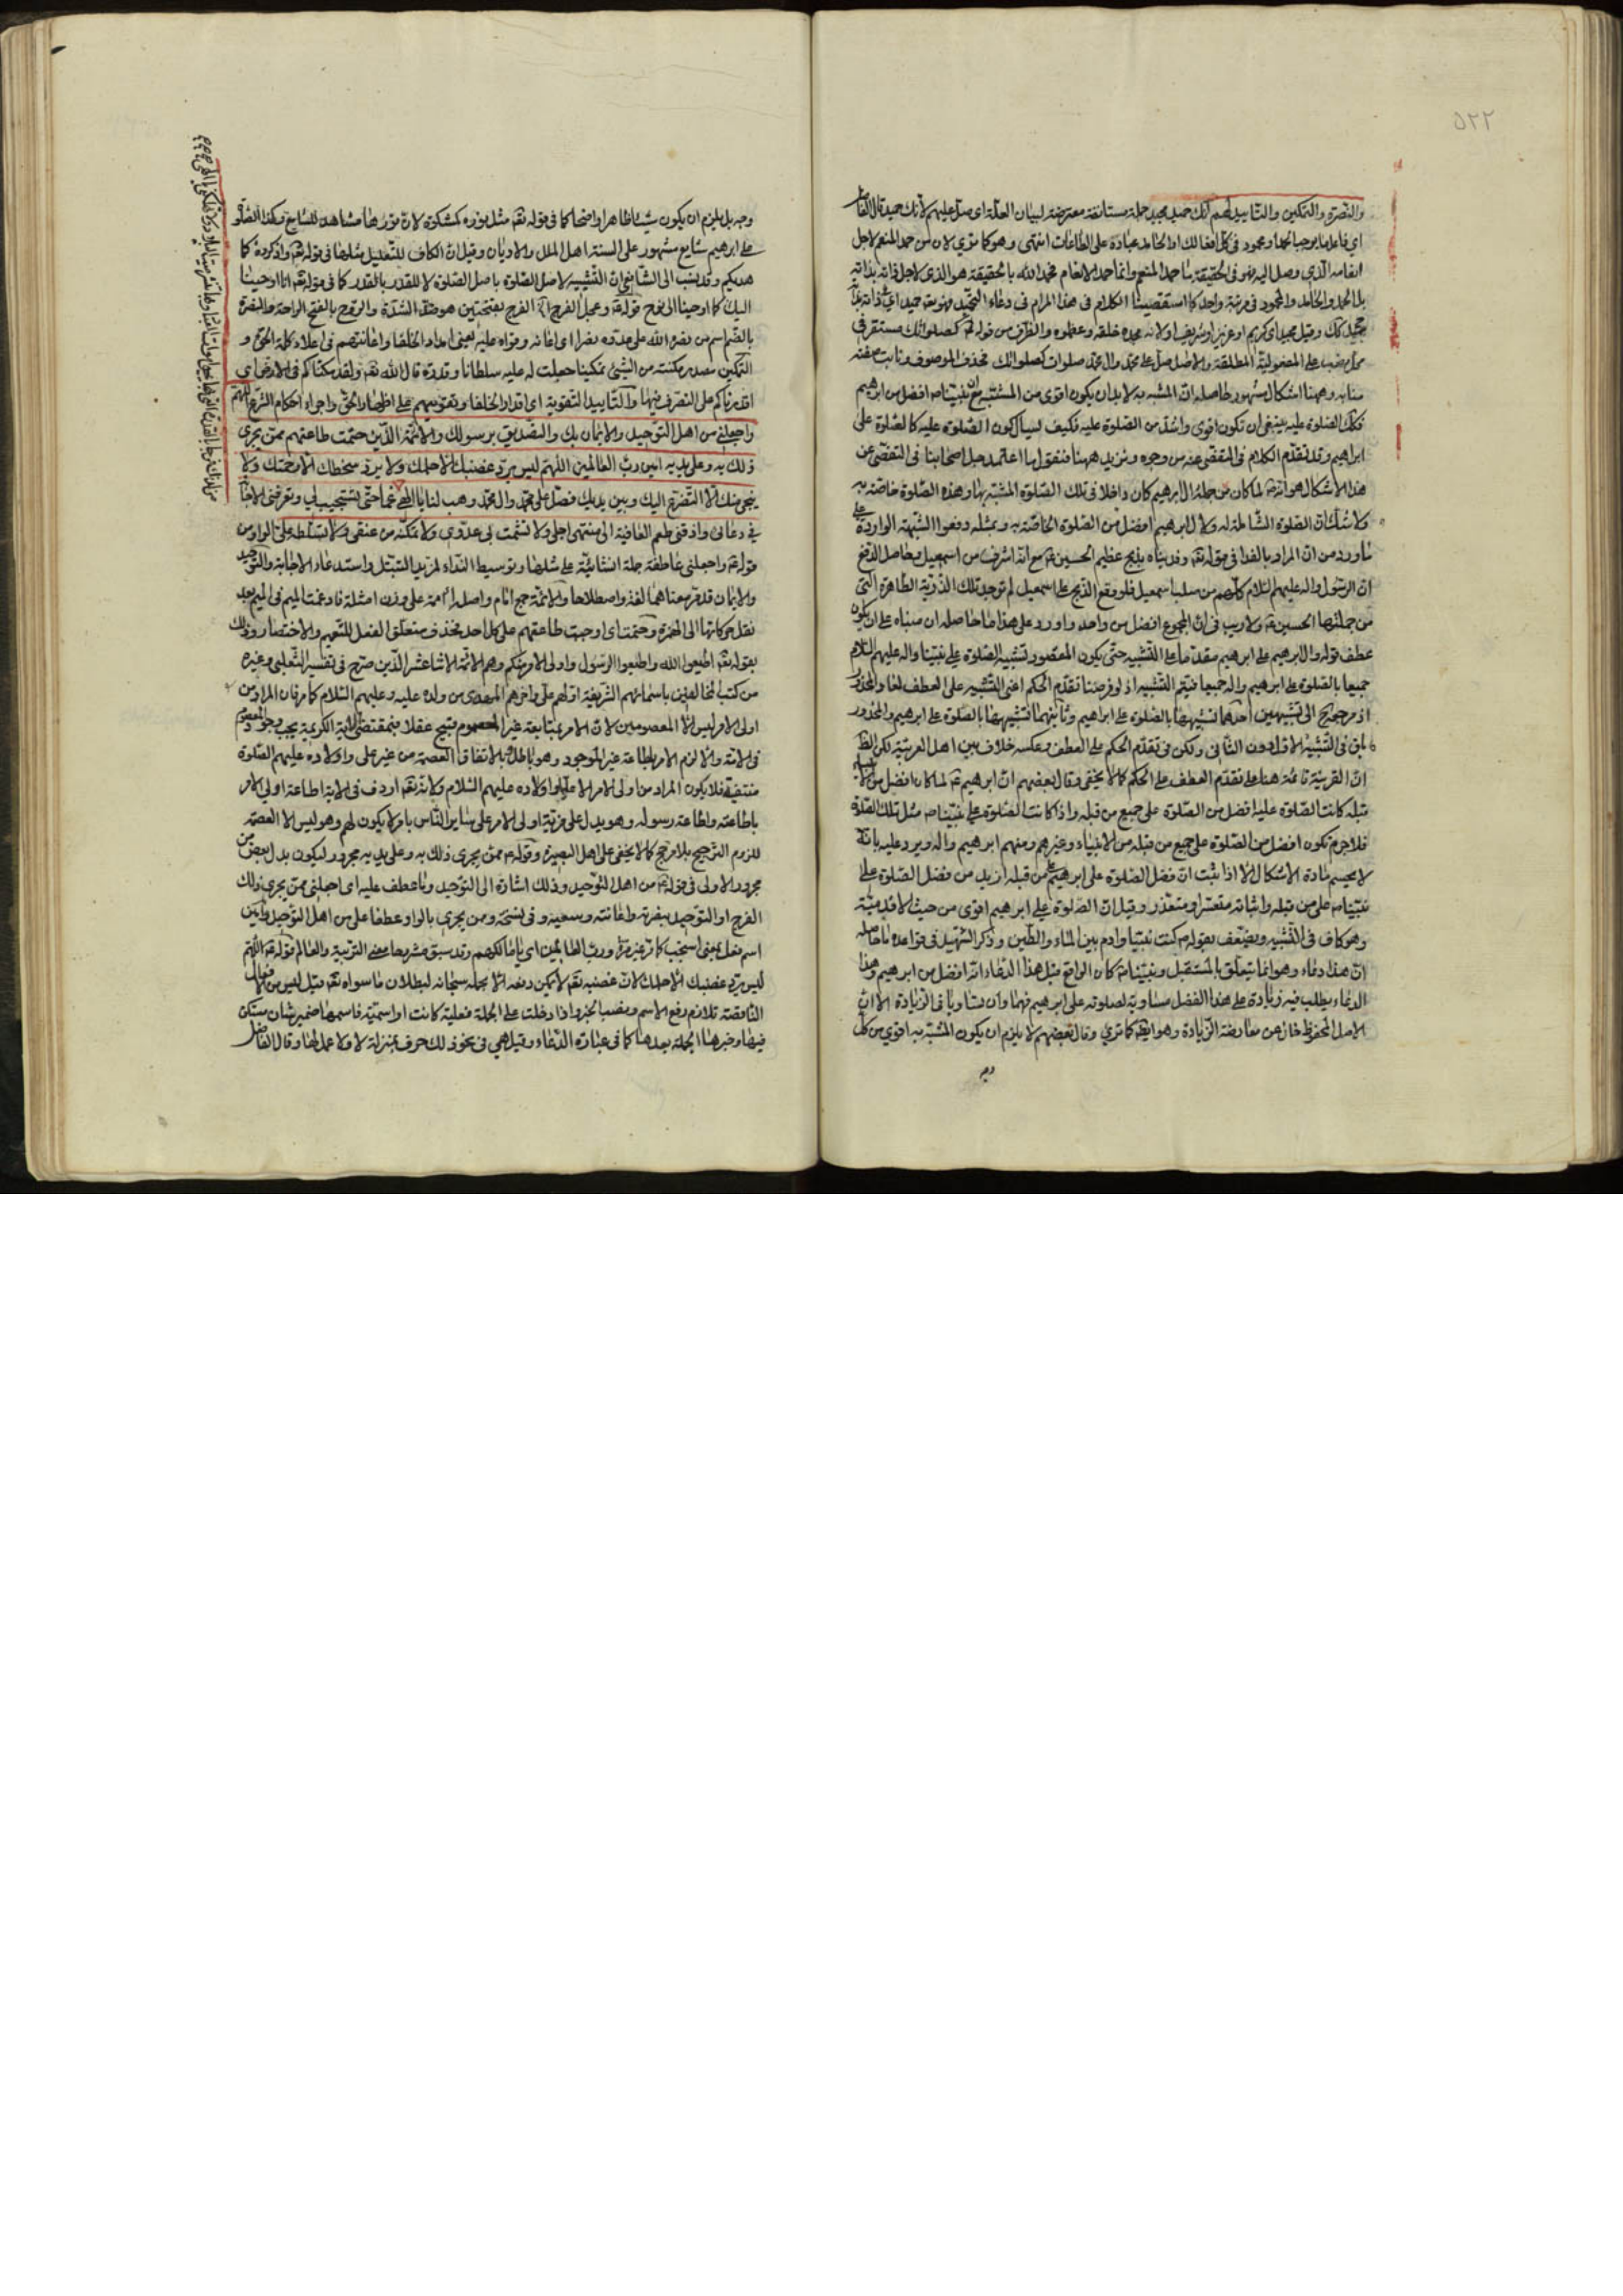 ٥٢٢
والنصرة والتمكين والتاييد لهم انك حميد مجيد جملة مستانفة معترضة لبيان العلة اى صل عليهم لانك حميد قال الفاضل
اى فاعل ما يوجب الحمد او محمود فى كل افعالك اذ الحامد عبادة على الطاعات انتهى وهو كما ترى لان من حمد المنعم لاجل
انعامه الذى وصل اليه فهو فى الحقيقة ما حمد المنعم وانما حمد الانعام فحمد الله بالحقيقة هو الذى لاجل ذاته بذاته
بل الحمد والحامد والمحمود فى مرتبة واحد كما استقصينا الكلام فى هذا المرام فى دعاء التحميد فهو تعالى حميد
مجيد كك وقيل مجيد اى كريم او عزيز او شريف اولانه مجده خلقه وعظموه والظرف من قوله كصلواتك مستقر فى
محل نصب على المفعولية المطلقة والاصل صل على محمد وال محمد صلوات كصلواتك فحذف الموصوف ونابت صفته
منابه وههنا اشكال مشهور حاصله ان المشبه به لابد ان يكون اقوى من المشبه مع ان نبينا ص افضل من ابرهيم
فكك الصلوة عليه ينبغى ان تكون اقوى واشد من الصلوة عليه فكيف يسال كون الصلوة عليه كالصلوة على
ابراهيم وقد تقدم الكلام فى التفصى عنه من وجوه ونزيد ههنا فنقول ما اعتمد جل اصحابنا فى التفصى عن
هذا الاشكال هو انه لما كان من جملة ال ابرهيم كان داخلا فى تلك الصلوة المشبه بها وهذه الصلوة خاصة به
ولا شك ان الصلوة الشاملة له ولال ابرهيم افضل من الصلوة الخاصة به وبمثله دفعوا الشبهة الواردة على
ما ورد من ان المراد بالفدا فى قوله تعالى وفديناه بذبح عظيم الحسين ع مع انه اشرف من اسمعيل وحاصل الدفع
ان الرسول واله عليهم السلام كلهم من صلب اسمعيل فلو وقع الذبح على اسمعيل لم توجد تلك الذرية الطاهرة التى
من جملتها الحسين ع ولا ريب فى ان المجموع افضل من واحد واورد على هذا ما حاصله ان مبناه على ان يكون
عطف قوله وال ابرهيم على ابرهيم مقدما على التشبيه حتى يكون المقصود تشبيه الصلوة على نبينا واله عليهم السلام
جميعا بالصلوة على ابرهيم واله جميعا فيتم التشبيه اذ لو فرضنا تقدم الحكم اعنى التشبيه على العطف لغا والمحذور
اذ مرجعه الى تشبيهين احدهما تشبيهها بالصلوة على ابراهيم وثانيهما تشبيهها بالصلوة على ابرهيم والمحذور
باق فى التشبيه الاول دون الثانى ولكن فى تقدم الحكم على العطف وعكسه خلاف بين اهل العربية لكن الظ
ان القرينة قائمة هنا على تقدم العطف على الحكم كما لا يخفى وقال بعضهم ان ابرهيم ع لما كان افضل من الانبياء
قبله كانت الصلوة عليه افضل من الصلوة على جميع من قبله واذا كانت الصلوة على نبينا ص مثل تلك الصلوة
فلا جرم تكون افضل من الصلوة على جميع من قبله من الانبياء وغيرهم ومنهم ابرهيم واله ويرد عليه بانه
لا يحسم مادة الاشكال الا اذا ثبت ان فضل الصلوة على ابرهيم على من قبله ازيد من فضل الصلوة على
نبينا ص على من قبله واثباته متعسر او متعذر وقيل ان الصلوة على ابرهيم اقوى من حيث الاقدمية
وهو كاف فى التشبيه ويضعف بقوله ص كنت نبيا وادم بين الماء والطين وذكر الشهيد فى قواعده ما حاصله
ان هذا دعاء وهو انما يتعلق بالمستقبل ونبينا ص كان الواقع قبل هذا الدعاء انه افضل من ابرهيم وهذا
الدعاء يطلب فيه زيادة على هذا الفضل مساوية لصلوته على ابرهيم فهما وان تساويا فى الزيادة الا ان
الاصل المحفوظ خال عن معارضة الزيادة وهو ايضا كما ترى وقال بعضهم لا يلزم ان يكون المشبه به اقوى من كل
وجه
وجه بل يلزم ان يكون شيئا ظاهرا واضحا كما فى قوله تعالى مثل نوره كمشكوة لان نورها مشاهد للسامع وهكذا الصلوة
على ابرهيم شايع مشهور على السنة اهل الملل والاديان وقيل ان الكاف للتعليل مثلها فى قوله تعالى واذكروه كما
هديكم وقد ينسب الى الشافعى ان التشبيه لاصل الصلوة باصل الصلوة لا للقدر بالقدر كما فى قوله تعالى انا اوحينا
اليك كما اوحينا الى نوح قوله ع وعجل الفرج الفرج بفتحتين هو ضد الشدة والروح بالفتح الراحة والنصرة
بالضم اسم من نصره الله على عدوه نصرا اى اعانه وقواه عليه يعنى امداد الخلفا واعانتهم فى اعلاء كلمة الحق و
التمكين مصدر مكنته من الشئ تمكينا جعلت له عليه سلطانا وقدرة قال الله تعالى ولقد مكناكم فى الارض اى
اقدرناكم على التصرف فيها والتاييد التقوية اى اقدار الخلفا وتقويتهم على اظهار الحق واجراء احكام الشرع اللهم
واجعلنى من اهل التوحيد والايمان بك والتصديق برسولك والائمة الذين حتمت طاعتهم ممن يجرى
ذلك به وعلى يديه امين رب العالمين اللهم ليس يرد غضبك الا حلمك ولا يرد سخطك الا رحمتك ولا
ينجى منك الا التضرع اليك وبين يديك فصل على محمد وال محمد وهب لنا يا الهى غما حتى تستجيب لى وتعرفنى الاجابة
فى دعائى واذقنى طعم العافية الى منتهى اجلى ولا تشمت بى عدوى ولا تمكنه من عنقى ولا تسلطه على الواو من
قوله ع واجعلنى عاطفة جملة انشائية على مثلها وتوسيط النداء لمزيد التبتل واستدعاء الاجابة والتوحيد
والايمان قد مر معناهما لغة واصطلاحا والائمة جمع امام واصله اأممة على وزن امثلة فادغمت الميم فى الميم بعد
نقل حركاتها الى الهمزة وحتمت اى اوجبت طاعتهم على كل احد فحذف متعلق الفعل للتعميم والاختصار وذلك
بقوله تعالى اطيعوا الله واطيعوا الرسول واولى الامر منكم وهم الائمة الاثنا عشر الذين صرح فى تفسير الثعلبى وغيره
من كتب المخالفين باسمائهم الشريفة اولهم على واخرهم المهدى من ولده عليه وعليهم السلام كما مر فان المراد من
اولى الامر ليس الا المعصومين لان الامر بمتابعة غير المعصوم قبيح عقلا فبمقتضى الاية الكريمة يجب وجود المعصوم
فى الامة والا لزم الامر باطاعة غير الموجود وهو باطل بالاتفاق العصمة من غير على واولاده عليهم الصلوة
منتفية فلا يكون المراد من اولى الامر الا عليا واولاده عليهم السلام ولانه تعالى اردف فى الاية اطاعة اولى الامر
باطاعته واطاعة رسوله وهو يدل على مزية اولى الامر على سائر الناس بامر لا يكون لهم وهو ليس الا العصمة
للزوم الترجيح بلا مرجح كما لا يخفى على اهل البصيرة وقوله ع ممن يجرى ذلك به وعلى يديه مجرور ليكون بدل بعض من
مجرور الاولى فى قوله ع من اهل التوحيد وذلك اشارة الى التوحيد وما عطف عليه اى اجعلنى ممن يجرى ذلك
الفرج او التوحيد بنصرته واعانته وسعيه وفى نسخة ومن يجرى بالواو عطفا على من اهل التوحيد وامين
اسم فعل بمعنى استجب كما مر غير مرة ورب العالمين اى يا مالكهم وقد سبق مشروحا معنى التربية والعالم قوله ع اللهم
ليس يرد غضبك الا حلمك لان غضبه تعالى لا يمكن دفعه الا بحلمه سبحانه لبطلان ما سواه تعالى وقيل ليس من الافعال
الناقصة تلازم رفع الاسم ونصب الخبر واذا دخلت على الجملة فعلية كانت او اسمية فاسمها ضمير شان مستكن
فيها وخبرها الجملة بعدها كما فى عبارة الدعاء وقيل هى فى نحو ذلك حرف بمنزلة لا ولا عمل لها وقال الفاضل